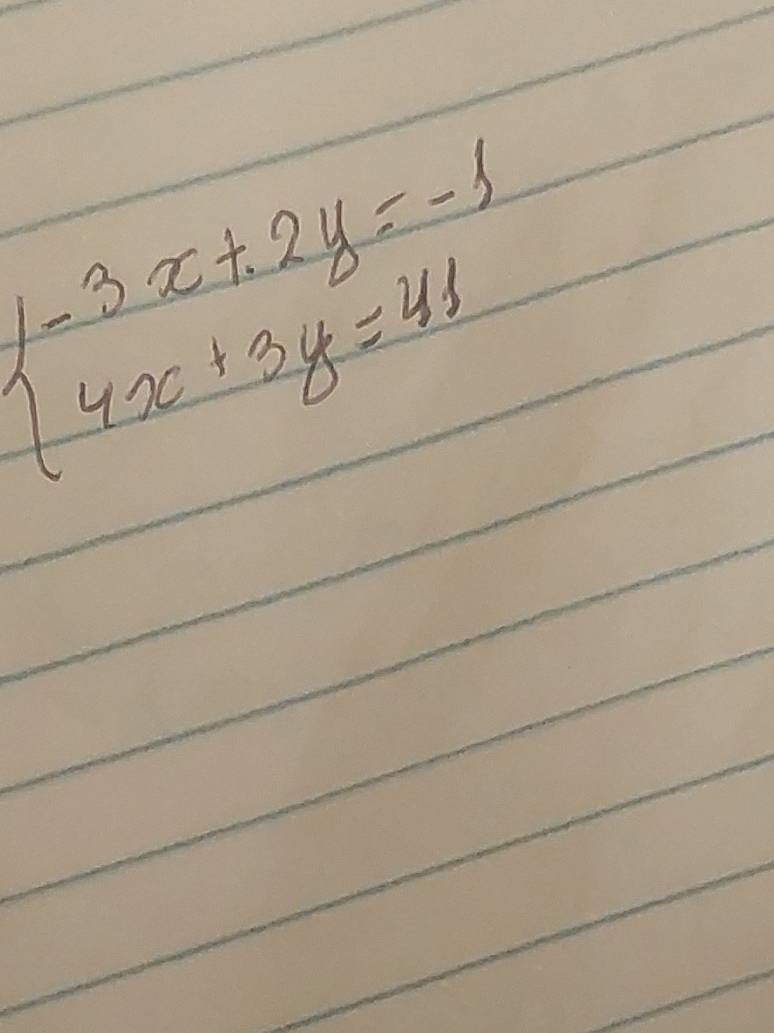 -3x+2y=-1
4x+3y=41